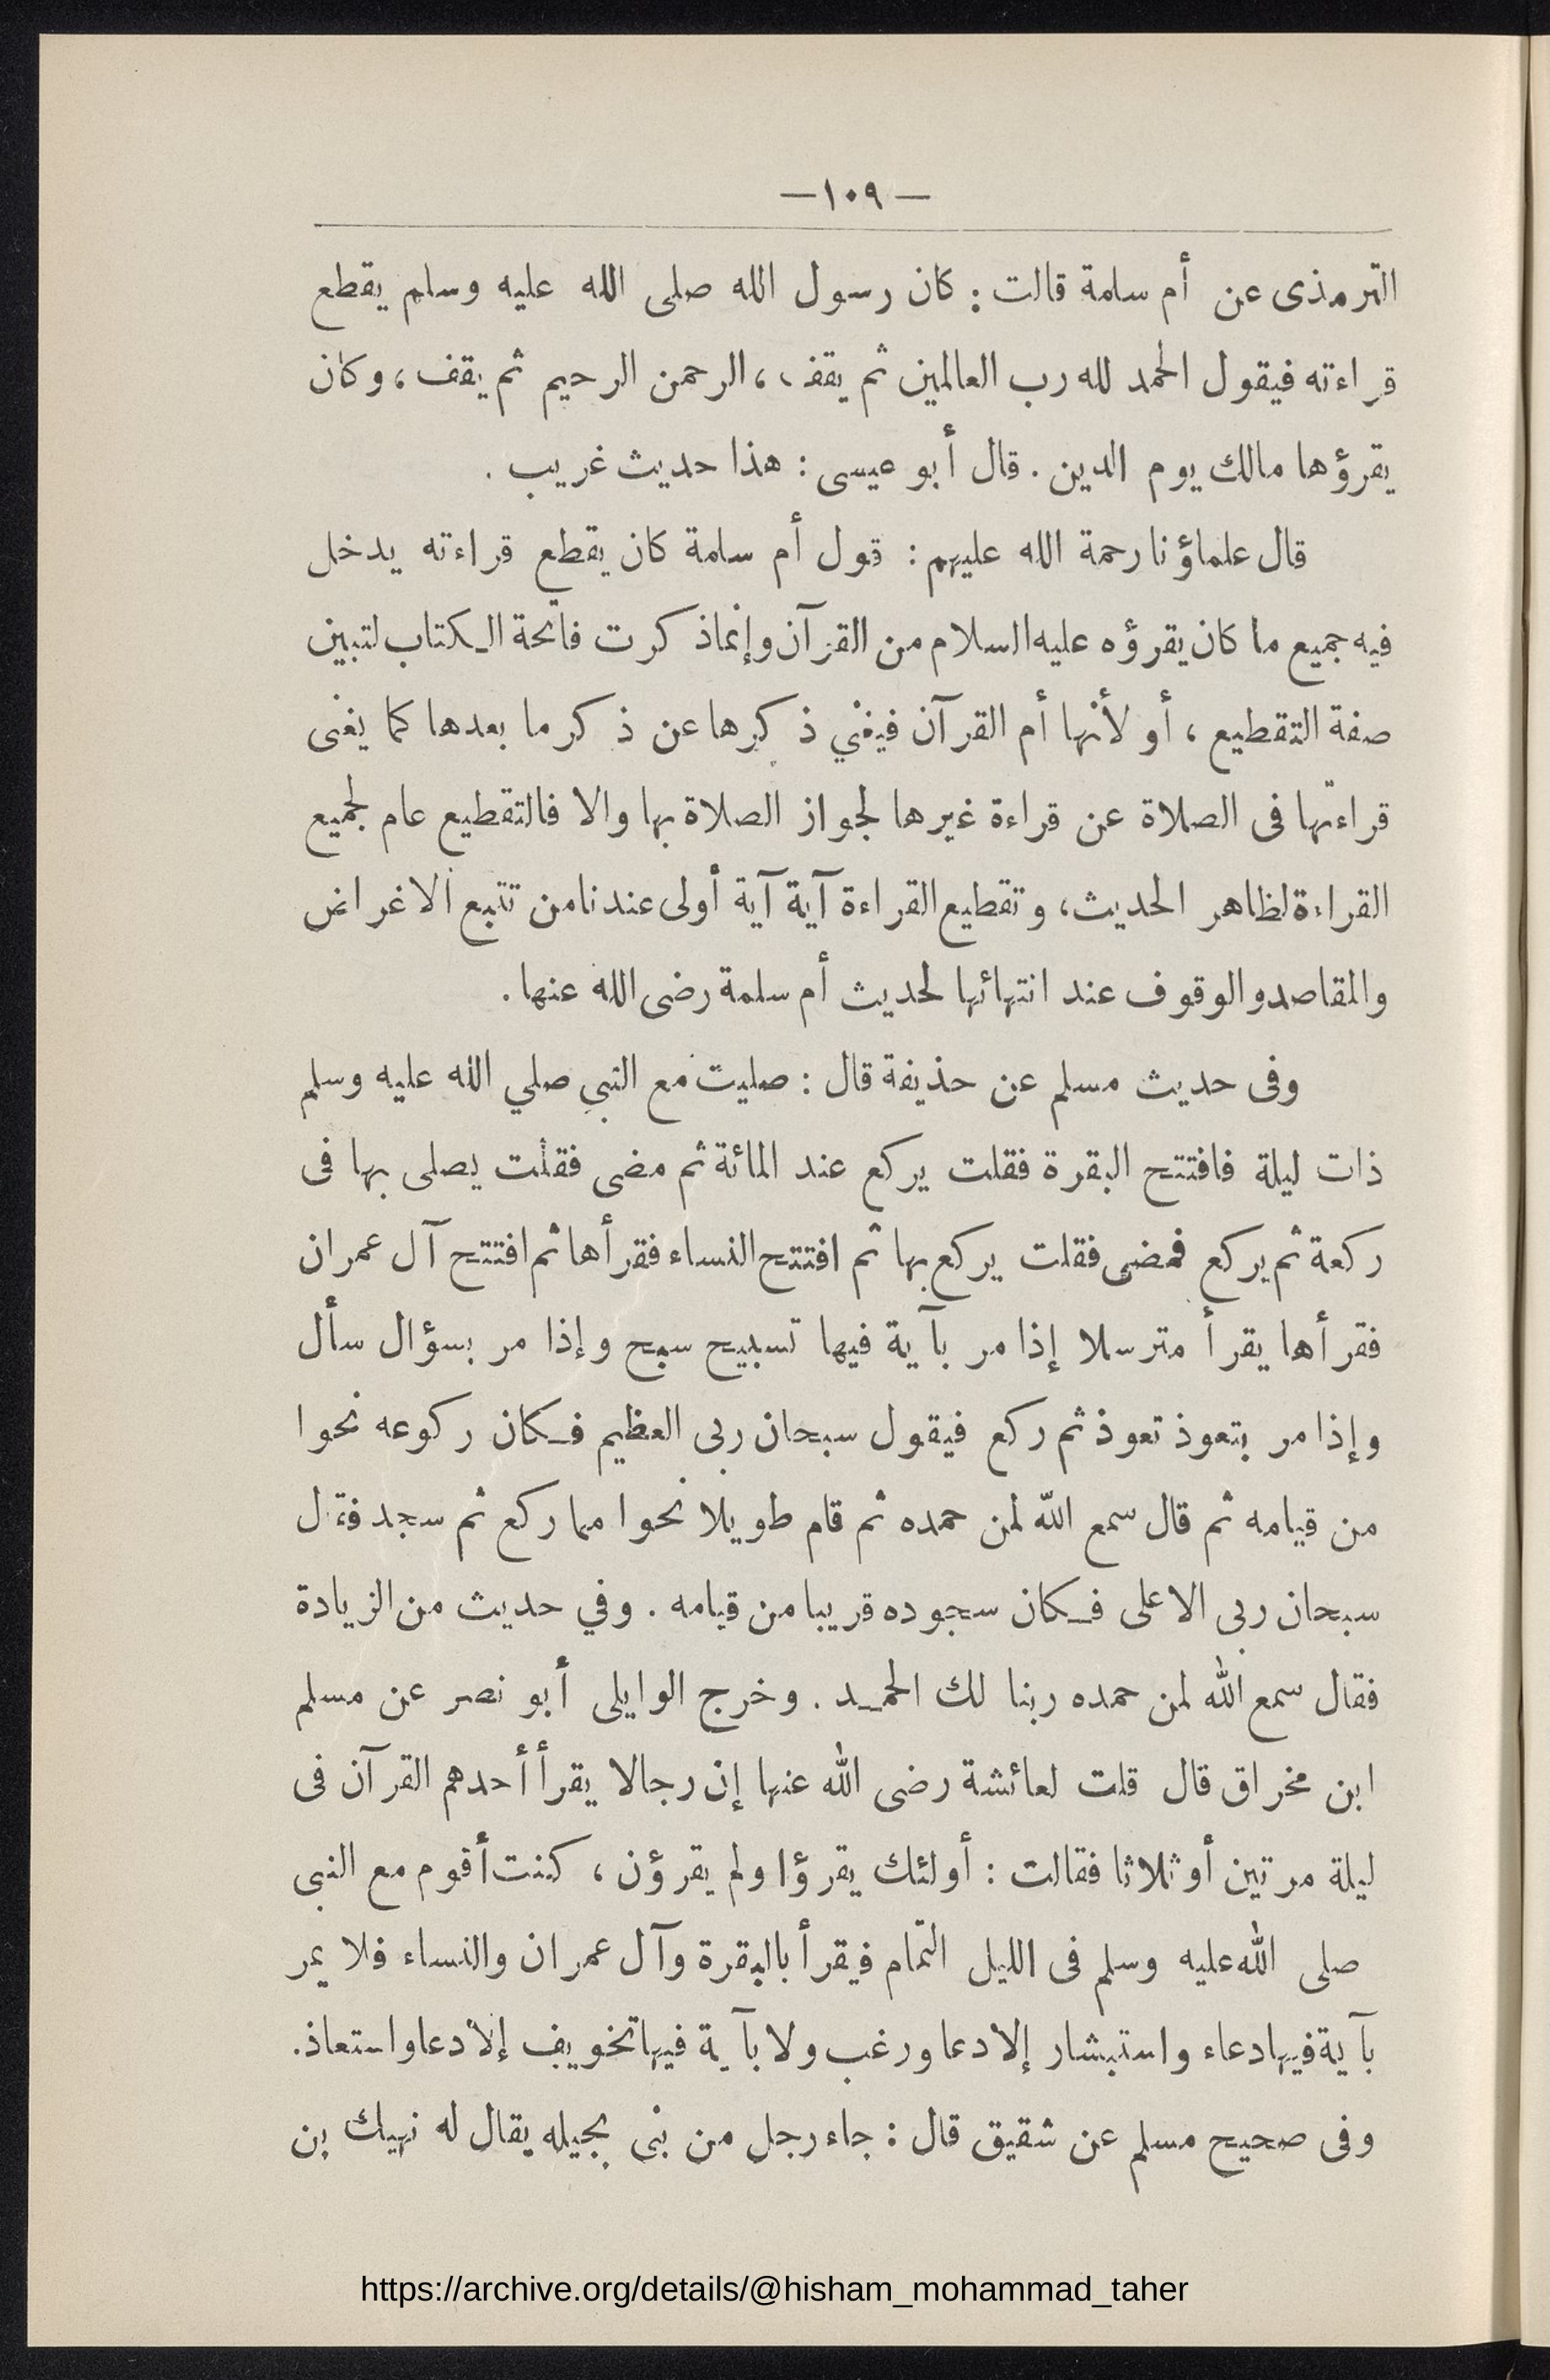 — ١٠٩ —
الترمذى عن أم سلمة قالت : كان رسول الله صلى الله عليه وسلم يقطع
قراءته فيقول الحمد لله رب العالمين ثم يقف ، الرحمن الرحيم ثم يقف ، وكان
يقرؤها مالك يوم الدين . قال أبو عيسى : هذا حديث غريب .
قال علماؤنا رحمة الله عليهم : قول أم سلمة كان يقطع قراءته يدخل
فيه جميع ما كان يقرؤه عليه السلام من القرآن وإنما ذكرت فاتحة الكتاب لتبين
صفة التقطيع ، أو لأنها أم القرآن فيغني ذكرها عن ذكر ما بعدها كما يغنى
قراءتها فى الصلاة عن قراءة غيرها لجواز الصلاة بها والا فالتقطيع عام لجميع
القراءة لظاهر الحديث ، وتقطيع القراءة آية آية أولى عندنا من تتبع الاغراض
والمقاصد والوقوف عند انتهائها لحديث أم سلمة رضى الله عنها .
وفى حديث مسلم عن حذيفة قال : صليت مع النبي صلي الله عليه وسلم
ذات ليلة فافتتح البقرة فقلت يركع عند المائة ثم مضى فقلت يصلى بها فى
ركعة ثم يركع فمضى فقلت يركع بها ثم افتتح النساء فقرأها ثم افتتح آل عمران
فقرأها يقرأ مترسلا إذا مر بآية فيها تسبيح سبح وإذا مر بسؤال سأل
وإذا مر بتعوذ تعوذ ثم ركع فيقول سبحان ربى العظيم فكان ركوعه نحوا
من قيامه ثم قال سمع الله لمن حمده ثم قام طويلا نحوا مما ركع ثم سجد فقال
سبحان ربى الاعلى فكان سجوده قريبا من قيامه . وفي حديث من الزيادة
فقال سمع الله لمن حمده ربنا لك الحمد . وخرج الوايلى أبو نصر عن مسلم
ابن مخراق قال قلت لعائشة رضى الله عنها إن رجالا يقرأ أحدهم القرآن فى
ليلة مرتين أو ثلاثا فقالت : أولئك يقرؤا ولم يقرؤن ، كنت أقوم مع النبى
صلى الله عليه وسلم فى الليل التمام فيقرأ بالبقرة وآل عمران والنساء فلا يمر
بآية فيها دعاء واستبشار إلا دعا ورغب ولا بآية فيها تخويف إلا دعا واستعاذ .
وفى صحيح مسلم عن شقيق قال : جاء رجل من بنى بجيله يقال له نهيك بن
https://archive.org/details/@hisham_mohammad_taher